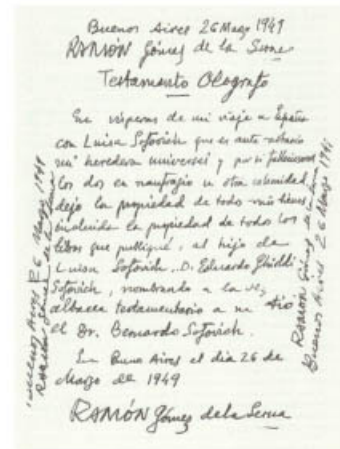 Buenos Aires 26 Mayo 1949
RAMÓN Gómez de la Serna
Testamento Olografo
En vísperas de mi viaje a España
con Luisa Sofovich que es ante notario
mi heredera universal y por si falleciesemos
los dos en naufragio u otra calamidad,
dejo la propiedad de todos mis bienes,
incluida la propiedad de todos los
libros que publiqué, al hijo de
Luisa Sofovich, D. Eduardo Ghioldi
Sofovich, nombrando a la vez
albacea testamentario a su tío
el Dr. Bernardo Sofovich.
En Buenos Aires el dia 26 de
Mayo de 1949
RAMÓN Gómez de la Serna
Buenos Aires 26 Mayo 1949
RAMÓN Gómez de la Serna
RAMÓN Gómez de la Serna
Buenos Aires 26 Mayo 1949